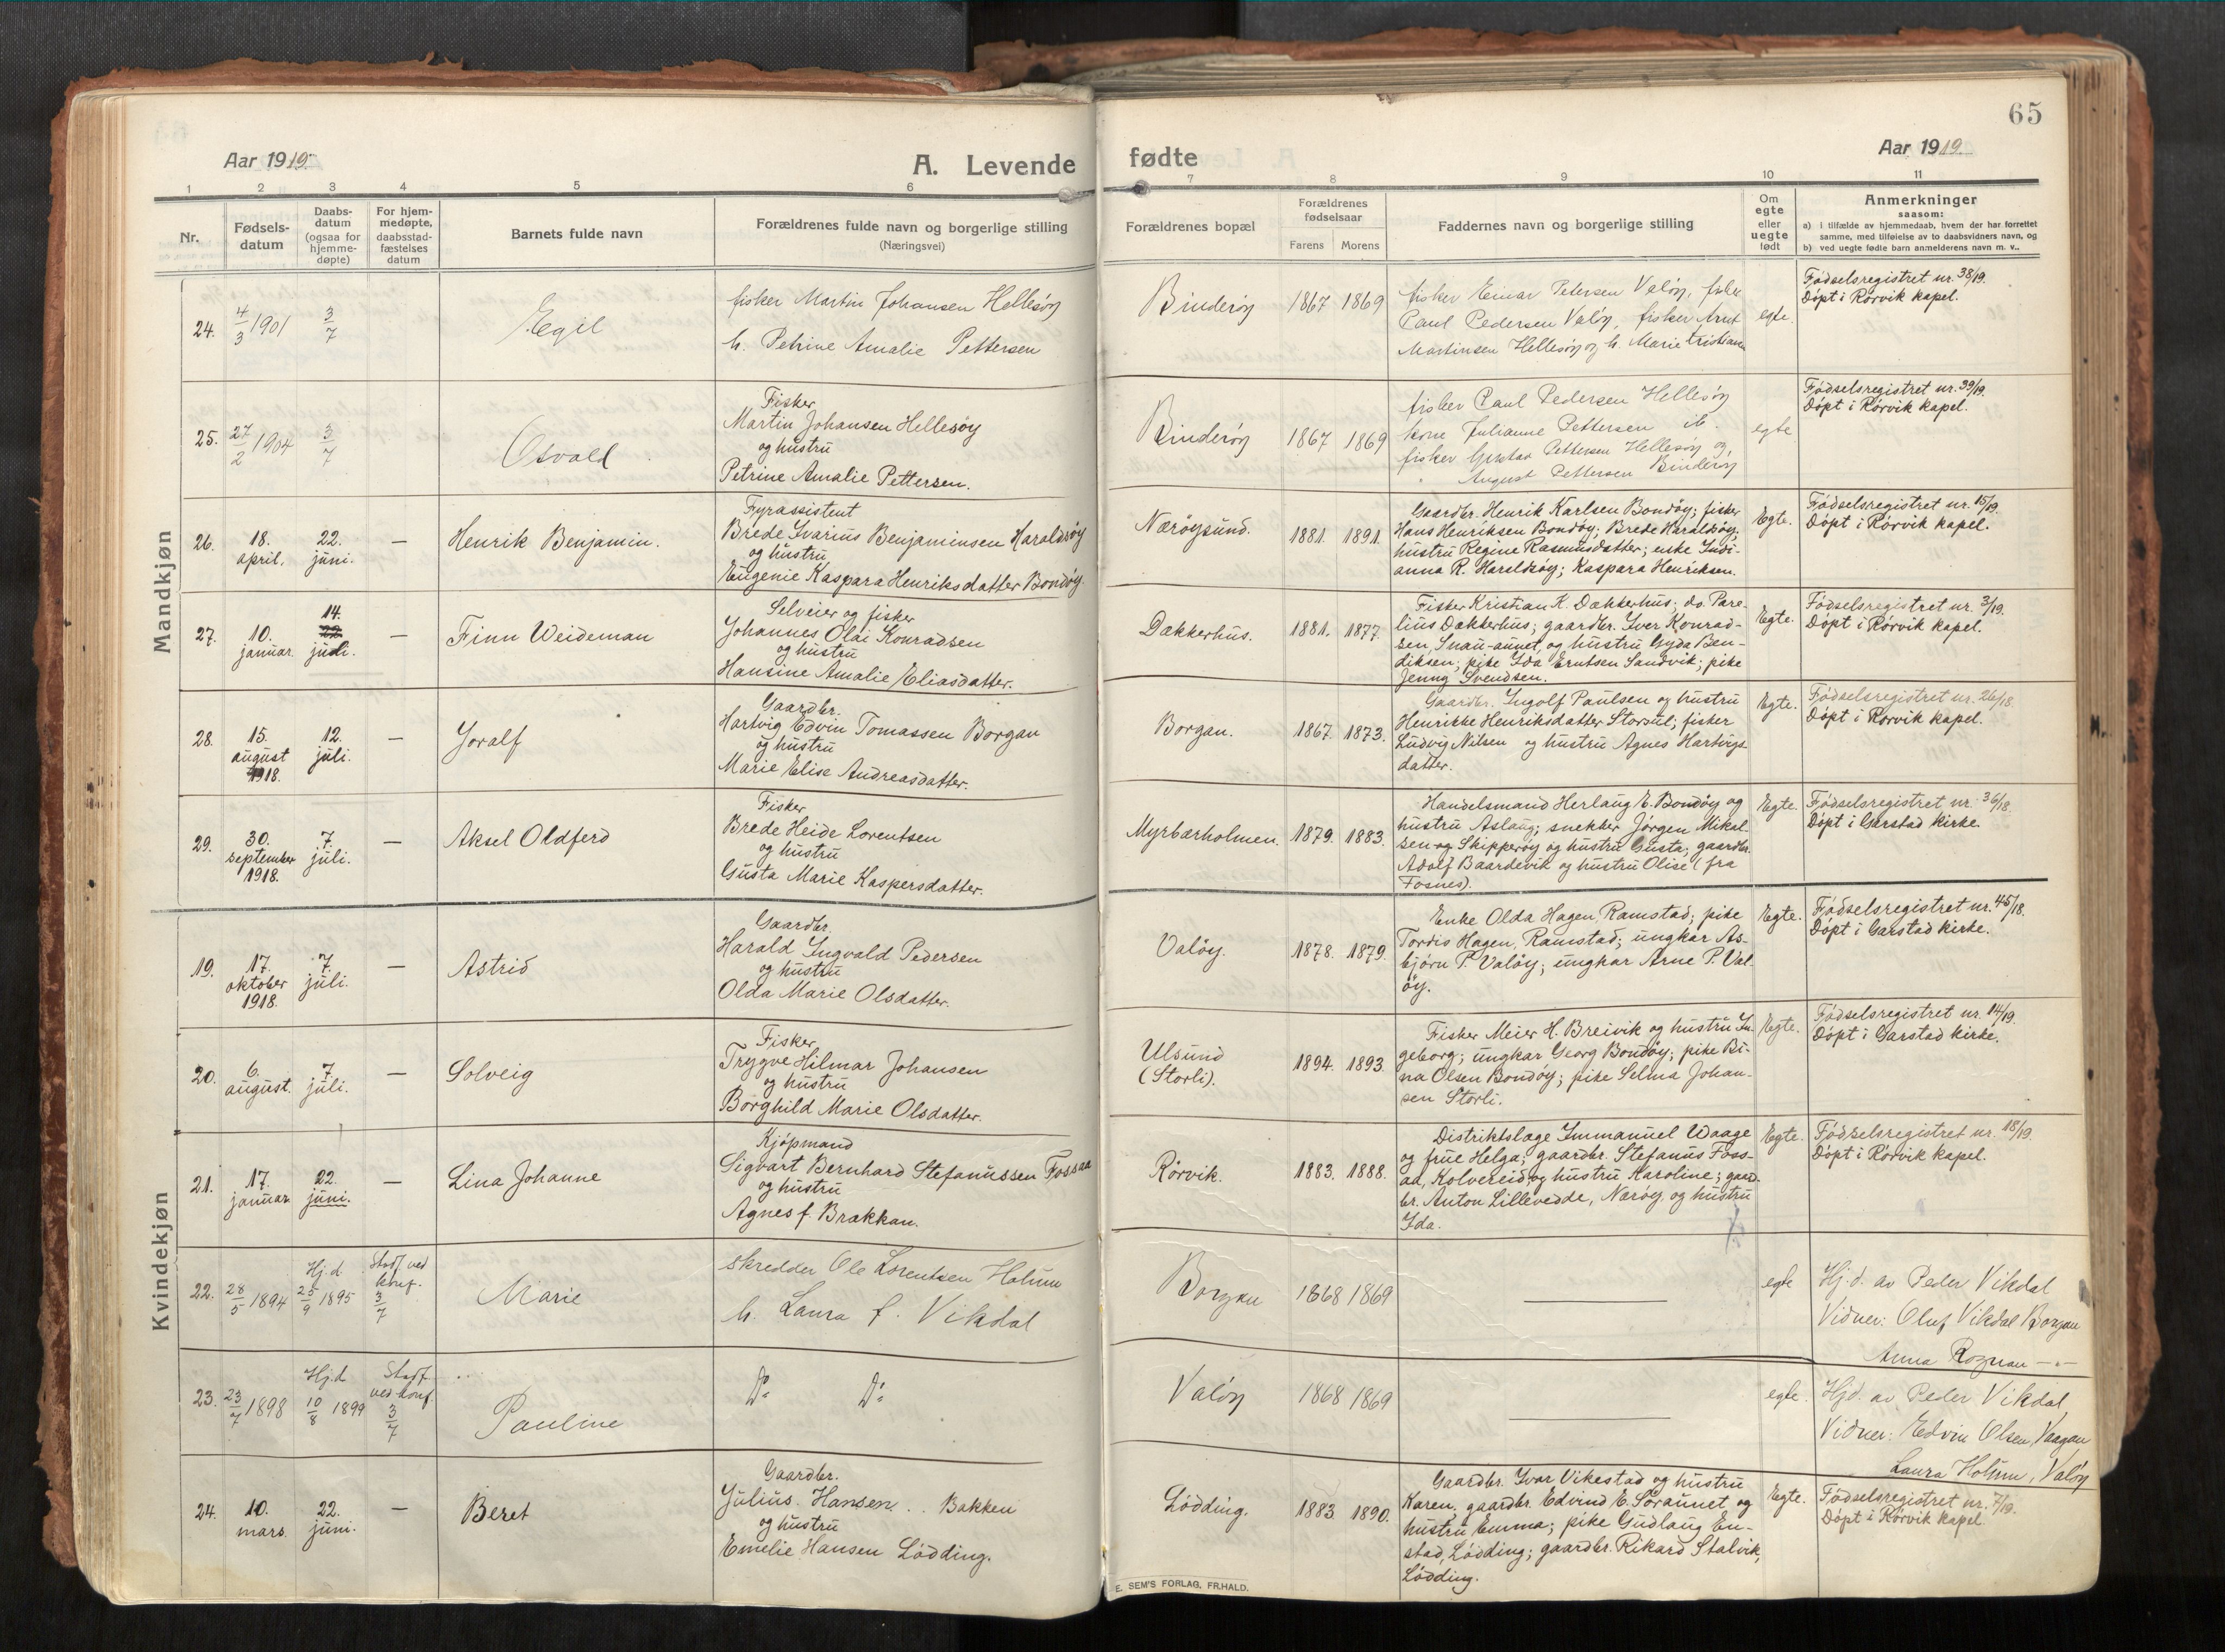 65
Aar 1919.
A. Levende
fødte
Aar 1919.
1 2 3 4 5 6 7 8 9 10 11
Nr.
Fødsels-
datum
Daabs-
datum
(ogsaa for
hjemme-
døpte)
For hjem-
medøpte,
daabsstad-
fæstelses
datum
Barnets fulde navn
Forældrenes fulde navn og borgerlige stilling
(Næringsvei)
Forældrenes bopæl
Forældrenes
fødselsaar
Farens Morens
Faddernes navn og borgerlige stilling
Om
egte
eller
uegte
født
Anmerkninger
saasom:
a) i tilfælde av hjemmedaab, hvem der har forrettet
samme, med tilføielse av to daabsvidners navn, og
b) ved uegte fødte barn anmelderens navn m. v..
Mandkjøn
24. 4/3 1901 3/7 Egil
fisker Martin Johansen Hellesøy
h. Petrine Amalie Pettersen
Binderøy 1867 1869
fisker Einar Petersen Valøy, fisker
Paul Pedersen Valøy, fisker Arnt
Martinsen Hellesøy og h. Marie Kristians
egte.
Fødselsregistret nr. 38/19.
Døpt i Rørvik kapel.
25. 27/2 1904 3/7 Osvald
Fisker
Martin Johansen Hellesøy
og hustru
Petrine Amalie Pettersen.
Binderøy 1867 1869
fisker Paul Pedersen Hellesøy
kone Julianne Pettersen ib.
fisker Gustav Pettersen Hellesøy og
August Pettersen Binderøy
egte
Fødselsregistret nr. 39/19.
Døpt i Rørvik kapel.
26. 18. april. 22. juni. — Henrik Benjamin.
Fyrassistent
Brede Ivarius Benjaminsen Haraldsøy
og hustru
Eugenie Kaspara Henriksdatter Bondøy.
Nærøysund. 1881. 1891.
Gaardbr. Henrik Karlsen Bondøy; fisker
Hans Henriksen Bondøy; Brede Haraldsøy;
hustru Regine Rasmusdatter; enke Indi-
anna R. Haraldsøy; Kaspara Henriksen.
Egte.
Fødselsregistret nr. 15/19.
Døpt i Rørvik kapel.
27. 10. januar. 14. 22. juli. — Finn Weideman
Selveier og fisker
Johannes Olai Konradsen
og hustru
Hansine Amalie Eliasdatter.
Dækkerhus. 1881. 1877.
Fisker Kristian K. Dækkerhus; do. Pare-
lius Dækkerhus; gaardbr. Iver Konrad-
sen, Snau-aunet, og hustru Gyda Ben-
diksen; pike Ida Erntsen Sandvik; pike
Jenny Svendsen.
Egte.
Fødselsregistret nr. 3/19.
Døpt i Rørvik kapel.
28. 15. august 1918. 12. juli. — Joralf
Gaardbr.
Hartvig Edvin Tomassen Borgan
og hustru
Marie Elise Andreasdatter.
Borgan. 1867. 1873.
Gaardbr. Ingolf Paulsen og hustru
Henrikke Henriksdatter Storsul; fisker
Ludvig Nilsen og hustru Agnes Hartvigs-
datter.
Egte.
Fødselsregistret nr. 26/18.
Døpt i Rørvik kapel.
29. 30. september 1918. 7. juli. — Aksel Oldferd
Fisker
Brede Heide Lorentsen
og hustru
Gusta Marie Kaspersdatter.
Myrbærholmen. 1879. 1883.
Handelsmand Herlaug E. Bondøy og
hustru Aslaug; snekker Jørgen Mikal-
sen og Skipperøy og hustru Gusta; gaardbr.
Adolf Baardevik og hustru Olise (fra
Fosnes).
Egte.
Fødselsregistret nr. 36/18.
Døpt i Garstad kirke.
Kvindekjøn
19. 17. oktober 1918. 7. juli. — Astrid
Gaardbr.
Harald Ingvald Pedersen
og hustru
Olda Marie Olsdatter.
Valøy. 1878. 1879.
Enke Olda Hagen, Ramstad; pike
Tordis Hagen, Ramstad; ungkar As-
bjørn P. Valøy; ungkar Arne P. Val-
øy.
Egte.
Fødselsregistret nr. 45/18.
Døpt i Garstad kirke.
20. 6. august. 7. juli. — Solveig
Fisker
Trygve Hilmar Johansen
og hustru
Borghild Marie Olsdatter.
Ulsund
(Storli). 1894. 1893.
Fisker Meier H. Breivik og hustru In-
geborg; ungkar Georg Bondøy; pike Bi-
na Olsen Bondøy; pike Selma Johan-
sen Storli.
Egte.
Fødselsregistret nr. 14/19.
Døpt i Garstad kirke.
21. 17. januar 22. juni. — Lina Johanne
Kjøpmand
Sigvart Bernhard Stefanussen Fossaa
og hustru
Agnes f. Brækkan.
Rørvik. 1883. 1888.
Distriktslæge Immanuel Waage
og frue Helga; gaardbr. Stefanus Foss-
aa, Kolvereid og hustru Karoline; gaard-
br. Anton Lillevedde, Nærøy og hustru
Ida.
Egte.
Fødselsregistret nr. 18/19.
Døpt i Rørvik kapel.
22. 28/5 1894 Hj.d. 25/9 1895 Stadf. ved konf. 3/7 Marie
skredder Ole Lorentsen Holum
h. Laura f. Vikdal
Borgan 1868 1869
egte
Hj.d. av Peder Vikdal
Vidner: Oluf Vikdal Borgan
Anna Rognan — " —
23. 23/7 1898 Hj.d 10/8 1899 Stadf. ved konf. 3/7 Pauline
Do Do
Valøy 1868 1869
egte.
Hjd. av Peder Vikdal
Vidner: Edvin Olsen, Vaagan
Laura Holum, Valøy
24. 10. mars. 22. juni. — Beret
Gaardbr.
Julius Hansen Bakken
og hustru
Emelie Hansen Lødding.
Lødding. 1883. 1890.
Gaardbr. Ivar Vikestad og hustru
Karen, gaardbr. Edvind E. Søraunet og
hustru Emma; pike Gudlaug En-
stad, Lødding; gaardbr. Rikard Stalvik,
Lødding.
Egte.
Fødselsregistret nr. 7/19.
Døpt i Rørvik kapel.
E. SEM'S FORLAG, FR.HALD.